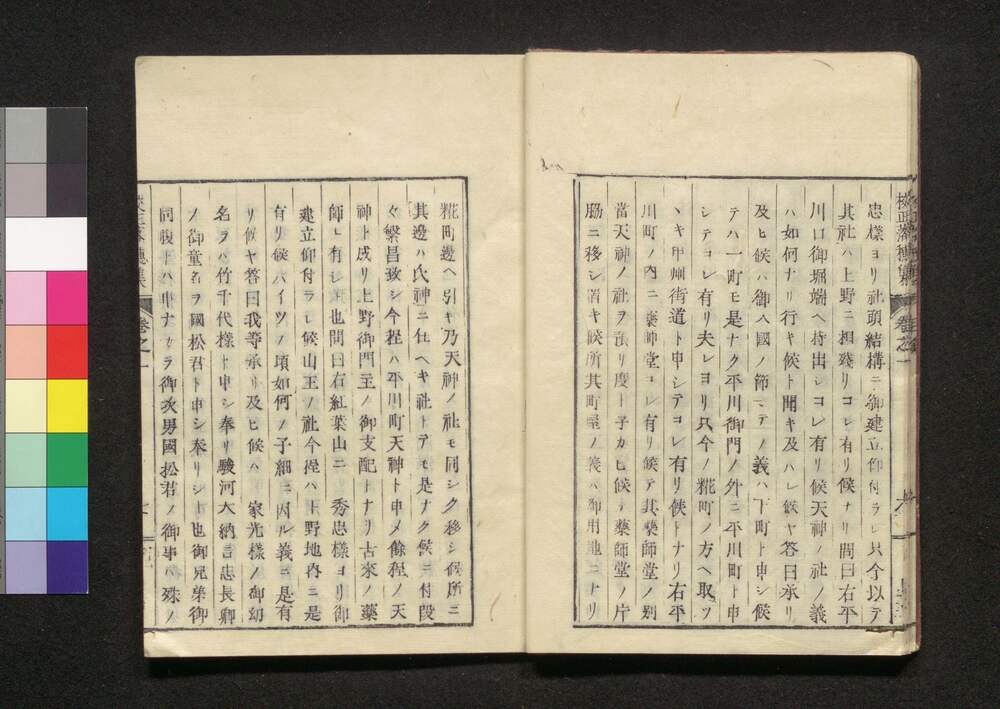 忠様ヨリ社頭結構ニ御建立仰付ラレ只今以テ
其社ハ上野ニ相残リコレ有リ候ナリ問曰右平
川口御堀端ヘ持出シコレ有リ候天神ノ社ノ義
ハ如何ナリ行キ候ト聞キ及ハレ候ヤ答曰承リ
及ヒ候ハ御入國ノ節ニテノ義ハ下町ト申シ候
テハ一町モ是ナク平川御門ノ外ニ平川町ト申
シテコレ有リ夫レヨリ只今ノ糀町ノ方ヘ取ツ
ヽキ甲州街道ト申シテコレ有リ候トナリ右平
川町ノ内ニ薬師堂コレ有リ候テ其薬師堂ノ別
當天神ノ社ヲ預リ度ト子カヒ候テ薬師堂ノ片
脇ニ移シ置キ候所其町屋ノ義ハ御用地ニナリ
糀町邊ヘ引キ乃天神ノ社モ同シク移シ候所ニ
其邊ハ氏神ニ仕ヘキ社トテモ是ナク候ニ付段
々繁昌致シ今程ハ平川町天神ト申メ餘程ノ天
神ト成リ上野御門主ノ御支配トナリ古來ノ藥
師モ有シ事也問曰右紅葉山ニ 秀忠様ヨリ御
建立仰付ラレ候山王ノ社今程ハ上野地内ニ是
有リ候ハイツノ頃如何ノ子細ニ因ル義ニ是有
リ候ヤ答曰我等承リ及ヒ候ハ 家光様ノ御幼
名ヲハ竹千代様ト申シ奉リ駿河大納言忠長卿
ノ御童名ヲ國松君ト申シ奉リシト也御兄弟御
同腹トハ申ナカラ御次男國松君ノ御事ハ殊ノ
卷之一